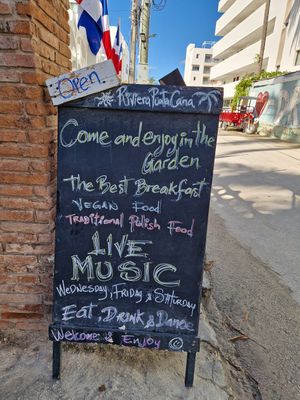 Open
Riviera Punta Cana
Come and enjoy in the
Garden
The Best Breakfast
Vegan Food
Traditional Polish Food
LIVE
MUSIC
Wednesday, Friday & Saturday
Eat, Drink & Dance
Welcome & Enjoy